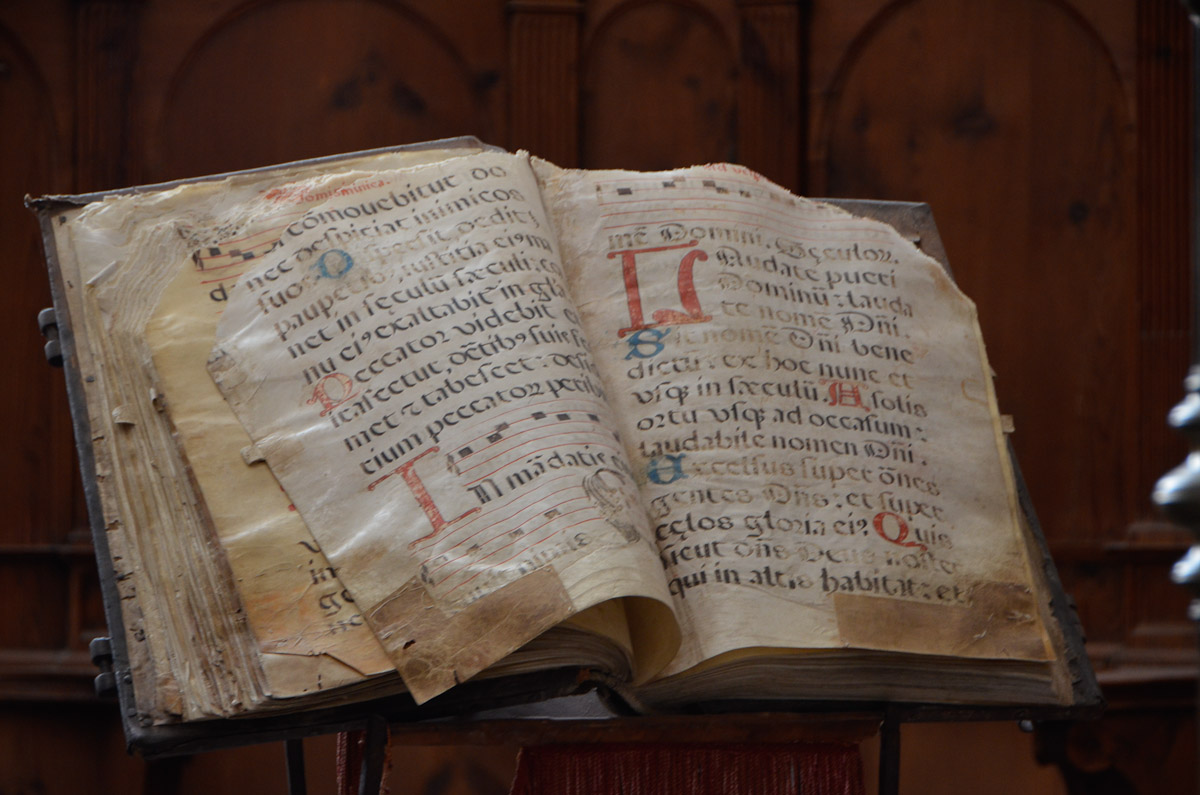 cōmovebitur do
nec despiciat inimicos
suos. Dispersit dedit
paupe iustitia ei9 ma
net in sęculū sæculi: co
nu ei9 exaltabit in glā
Peccator videbit
irascetur, dētib9 suis
met ⁊ tabescet: desi
rium peccatoꝝ
In mādatis e
mē Domini. Sęculoꝝ.
Laudate pueri
Dominū: lauda
te nomē Dn̄i.
Sit nomē Dn̄i bene
dictū: ex hoc nunc et
vsqꝫ in sæculū. A solis
ortu vsqꝫ ad occasum:
laudabile nomen Dn̄i.
Excelsus super ōnes
gentes Dn̄s: et super
cęlos gloria ei9 Quis
sicut Dn̄s Deus noster
qui in altis habitat: et